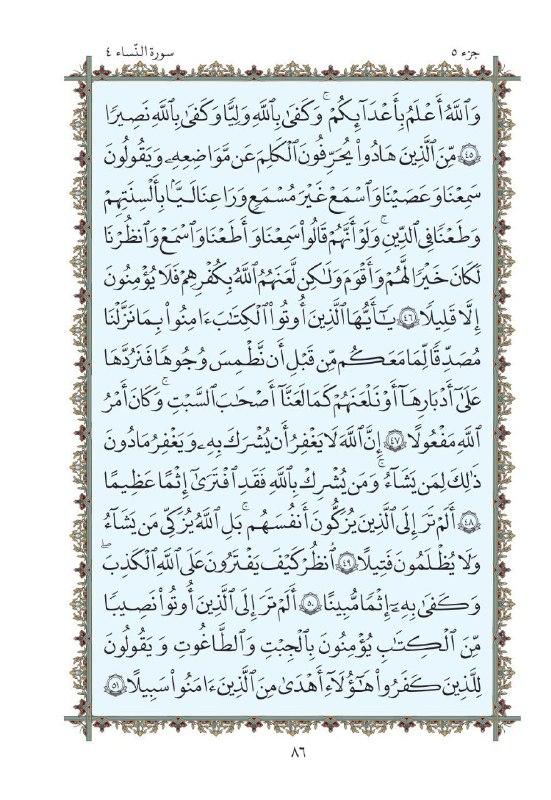 جزء ٥
سورة النّساء ٤
وَٱللَّهُ أَعْلَمُ بِأَعْدَآئِكُمْ ۚ وَكَفَىٰ بِٱللَّهِ وَلِيًّا وَكَفَىٰ بِٱللَّهِ نَصِيرًا
﴿٤٥﴾ مِّنَ ٱلَّذِينَ هَادُوا۟ يُحَرِّفُونَ ٱلْكَلِمَ عَن مَّوَاضِعِهِۦ وَيَقُولُونَ
سَمِعْنَا وَعَصَيْنَا وَٱسْمَعْ غَيْرَ مُسْمَعٍ وَرَٰعِنَا لَيًّۢا بِأَلْسِنَتِهِمْ
وَطَعْنًا فِى ٱلدِّينِ ۚ وَلَوْ أَنَّهُمْ قَالُوا۟ سَمِعْنَا وَأَطَعْنَا وَٱسْمَعْ وَٱنظُرْنَا
لَكَانَ خَيْرًا لَّهُمْ وَأَقْوَمَ وَلَـٰكِن لَّعَنَهُمُ ٱللَّهُ بِكُفْرِهِمْ فَلَا يُؤْمِنُونَ
إِلَّا قَلِيلًا ﴿٤٦﴾ يَـٰٓأَيُّهَا ٱلَّذِينَ أُوتُوا۟ ٱلْكِتَـٰبَ ءَامِنُوا۟ بِمَا نَزَّلْنَا
مُصَدِّقًا لِّمَا مَعَكُم مِّن قَبْلِ أَن نَّطْمِسَ وُجُوهًا فَنَرُدَّهَا
عَلَىٰٓ أَدْبَارِهَآ أَوْ نَلْعَنَهُمْ كَمَا لَعَنَّآ أَصْحَـٰبَ ٱلسَّبْتِ ۚ وَكَانَ أَمْرُ
ٱللَّهِ مَفْعُولًا ﴿٤٧﴾ إِنَّ ٱللَّهَ لَا يَغْفِرُ أَن يُشْرَكَ بِهِۦ وَيَغْفِرُ مَا دُونَ
ذَٰلِكَ لِمَن يَشَآءُ ۚ وَمَن يُشْرِكْ بِٱللَّهِ فَقَدِ ٱفْتَرَىٰٓ إِثْمًا عَظِيمًا
﴿٤٨﴾ أَلَمْ تَرَ إِلَى ٱلَّذِينَ يُزَكُّونَ أَنفُسَهُم ۚ بَلِ ٱللَّهُ يُزَكِّى مَن يَشَآءُ
وَلَا يُظْلَمُونَ فَتِيلًا ﴿٤٩﴾ ٱنظُرْ كَيْفَ يَفْتَرُونَ عَلَى ٱللَّهِ ٱلْكَذِبَ ۖ
وَكَفَىٰ بِهِۦٓ إِثْمًا مُّبِينًا ﴿٥٠﴾ أَلَمْ تَرَ إِلَى ٱلَّذِينَ أُوتُوا۟ نَصِيبًا
مِّنَ ٱلْكِتَـٰبِ يُؤْمِنُونَ بِٱلْجِبْتِ وَٱلطَّـٰغُوتِ وَيَقُولُونَ
لِلَّذِينَ كَفَرُوا۟ هَـٰٓؤُلَآءِ أَهْدَىٰ مِنَ ٱلَّذِينَ ءَامَنُوا۟ سَبِيلًا ﴿٥١﴾
٨٦